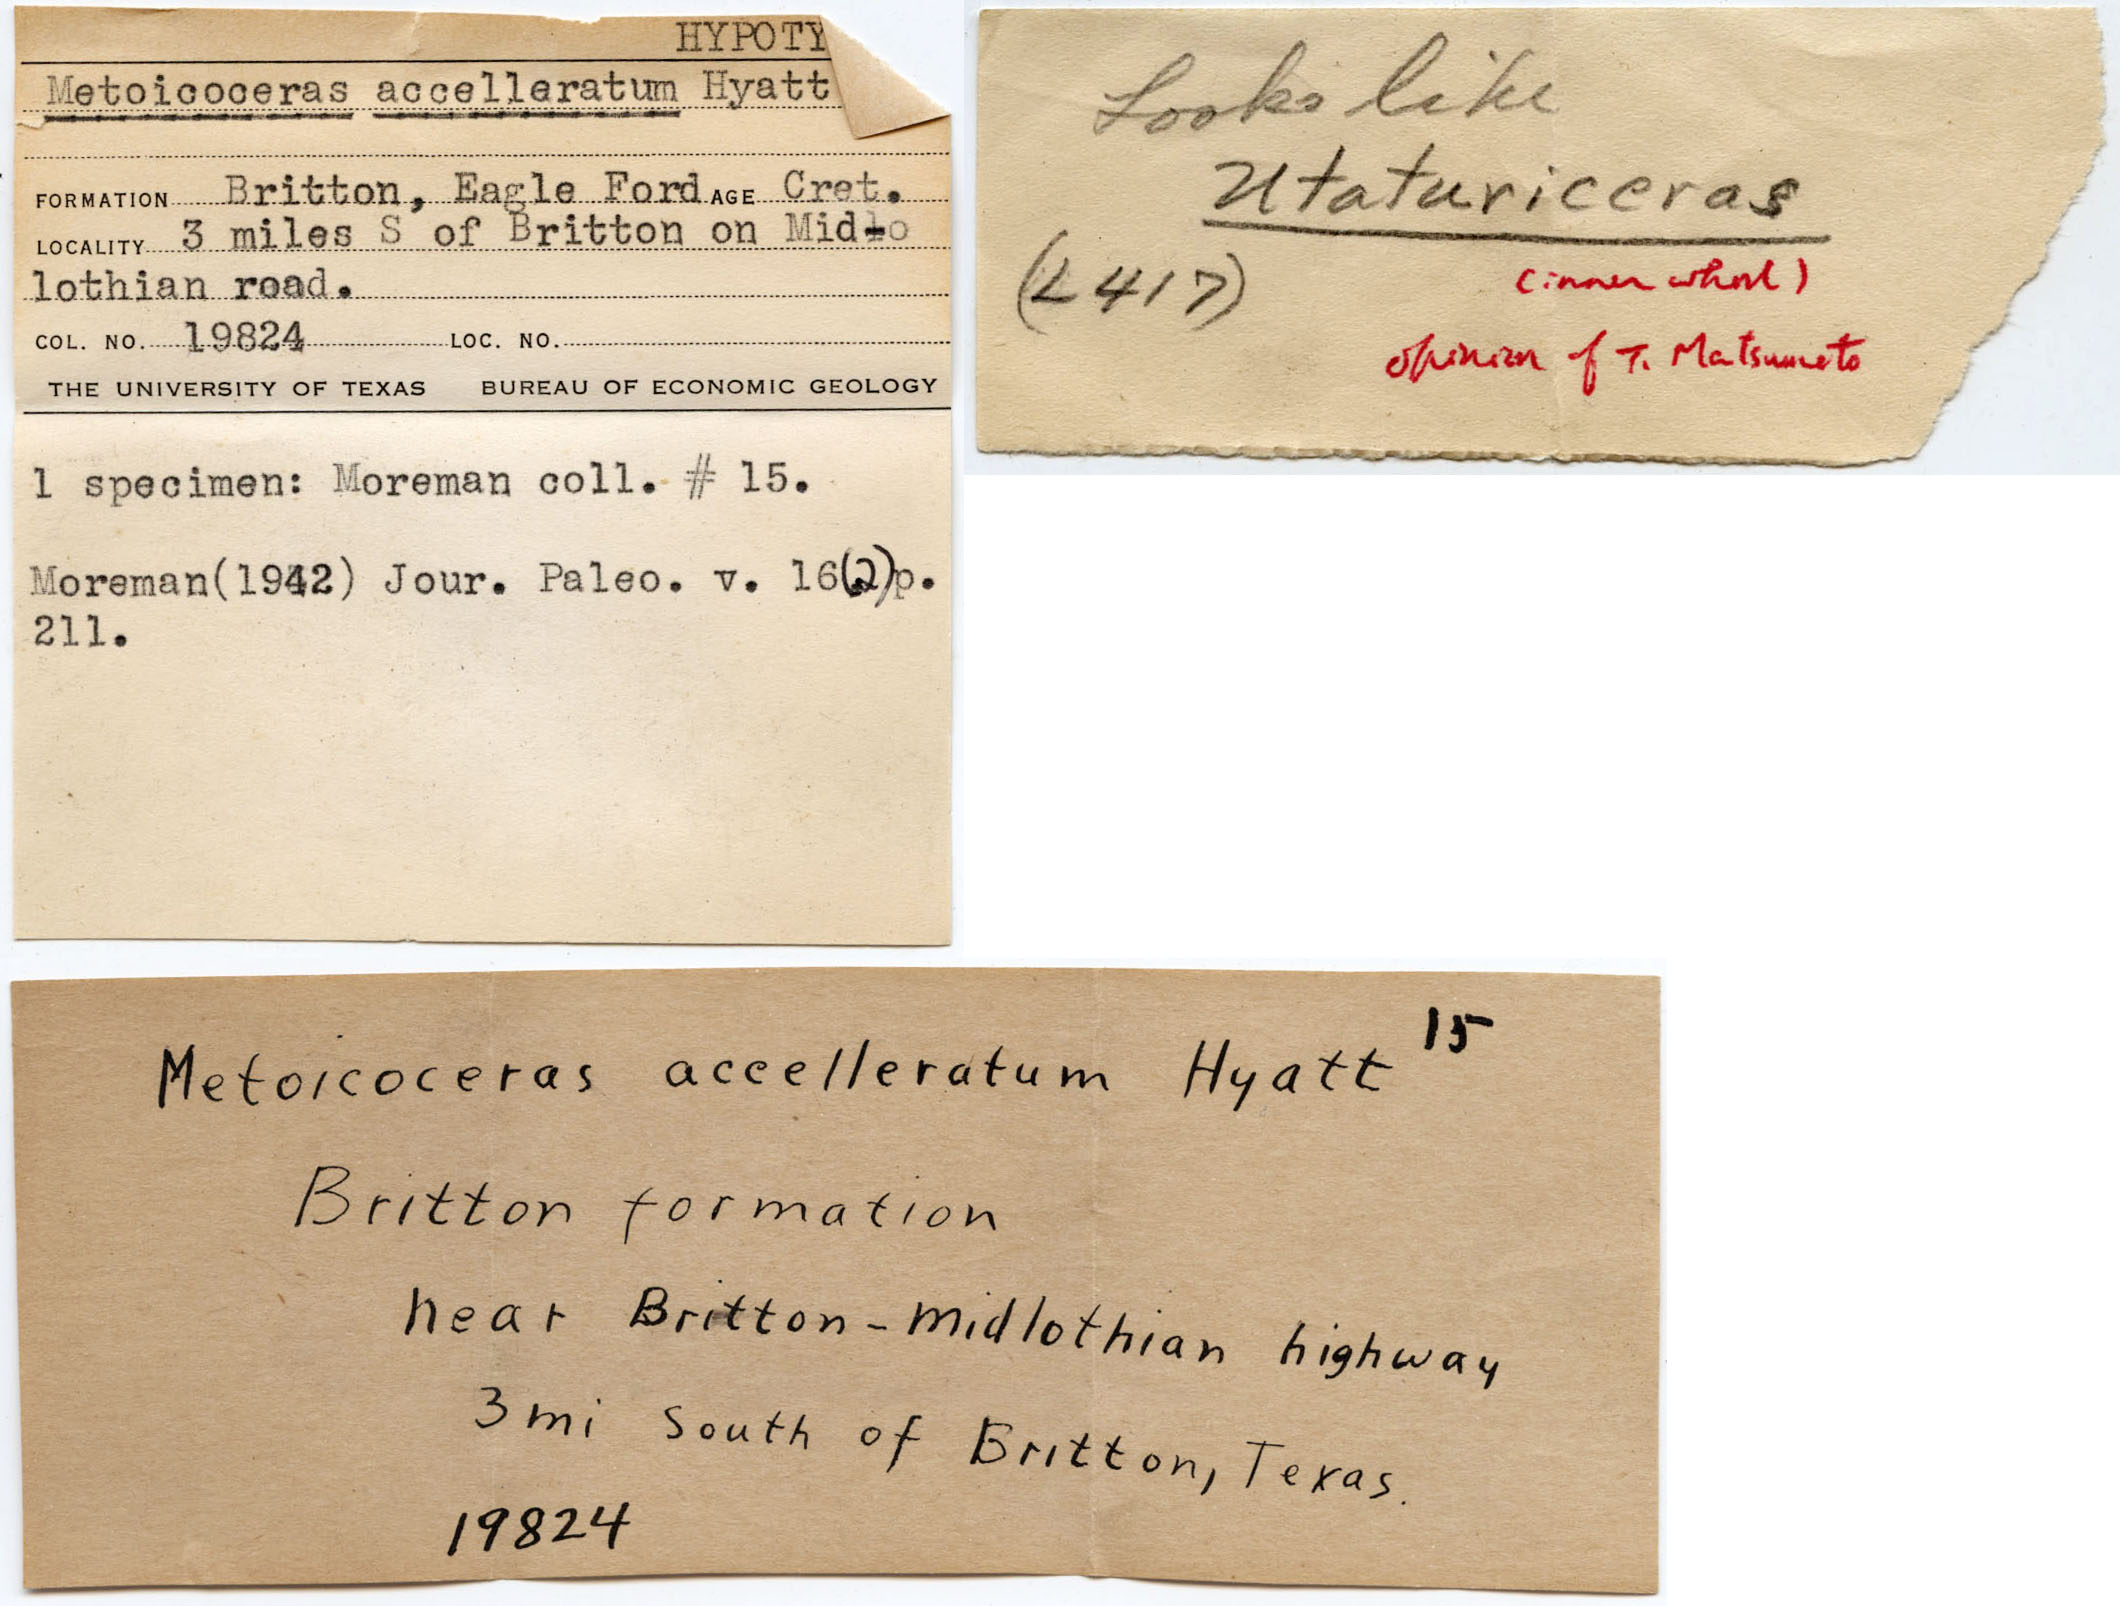 HYPOTY
Metoicoceras accelleratum Hyatt
FORMATION Britton, Eagle Ford AGE Cret.
LOCALITY 3 miles S of Britton on Mid-lo
lothian road.
COL. NO. 19824 LOC. NO.
THE UNIVERSITY OF TEXAS BUREAU OF ECONOMIC GEOLOGY
1 specimen: Moreman coll. # 15.
Moreman(1942) Jour. Paleo. v. 16(2)p.
211.
Looks like
Utaturiceras
(L 417)
(inner whorl)
opinion of T. Matsumoto
Metoicoceras accelleratum Hyatt 15
Britton formation
near Britton-Midlothian highway
3mi South of Britton, Texas.
19824